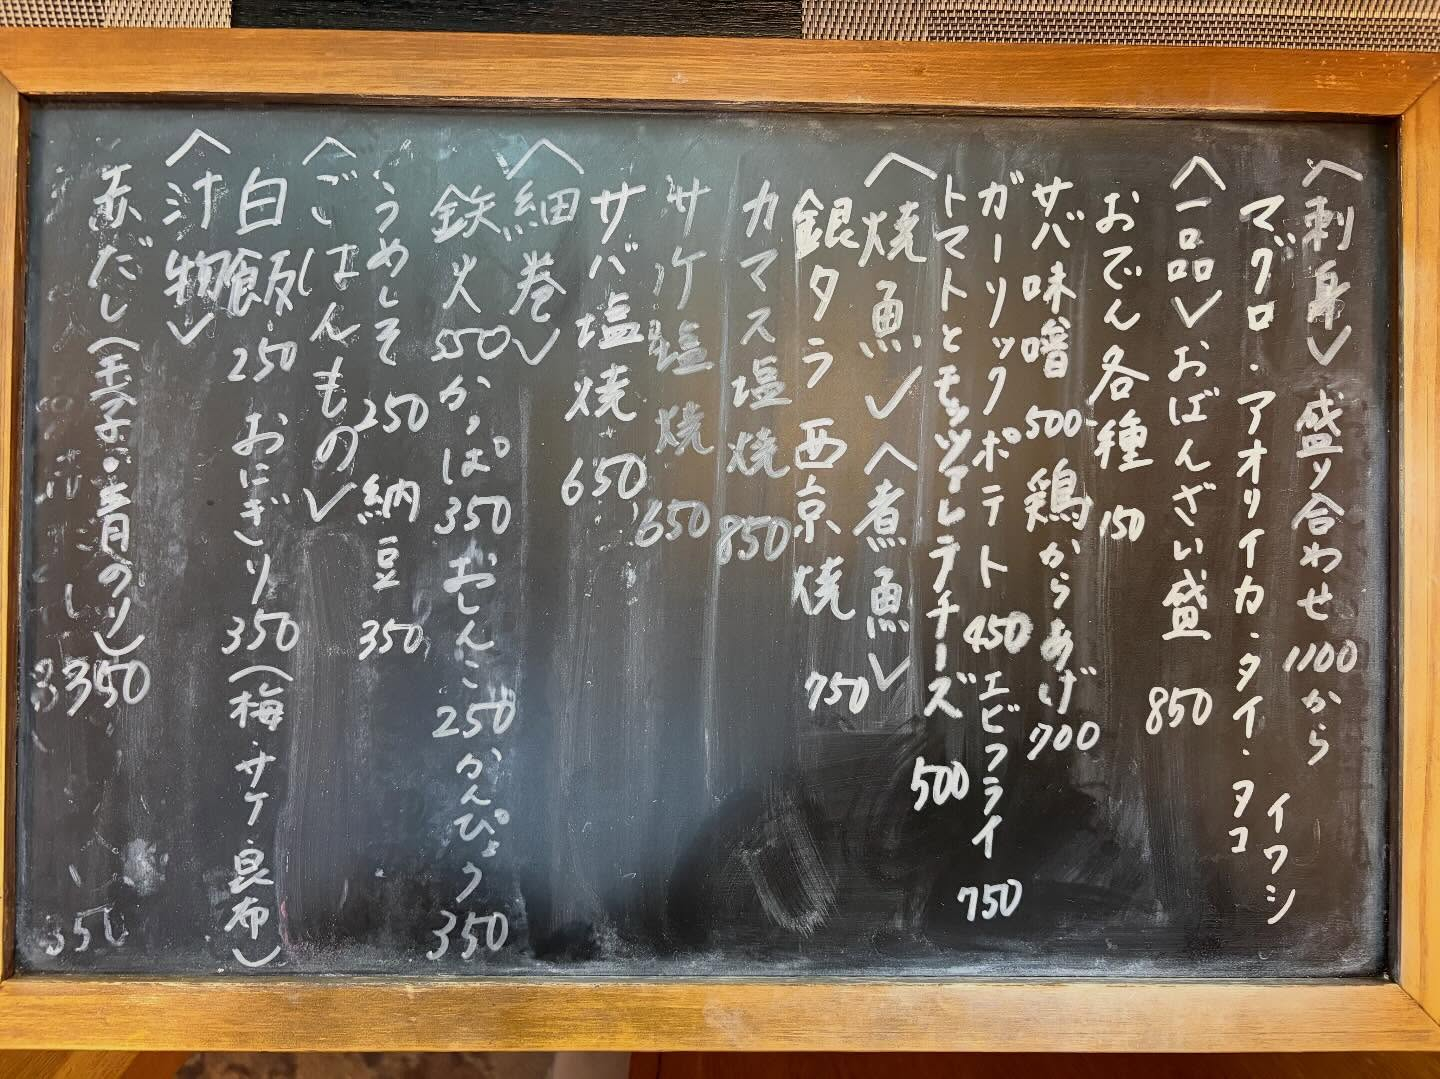 〈刺身〉盛り合わせ 1100から
マグロ・アオリイカ・タイ・タコ
イワシ
〈一品〉おばんざい盛 850
おでん各種 150
サバ味噌 500 鶏からあげ 700
ガーリックポテト 450 エビフライ 750
トマトとモッツァレラチーズ 500
〈焼魚〉〈煮魚〉
銀タラ西京焼 750
カマス塩焼 850
サケ塩焼 650
サバ塩焼 650
〈細巻〉
鉄火 550 かっぱ 350 おしんこ 250 かんぴょう 350
うめしそ 250 納豆 350
〈ごはんもの〉
白飯・250 おにぎり 350 (梅・サケ・昆布)
〈汁物〉
赤だし(玉子・青のり) 350
350